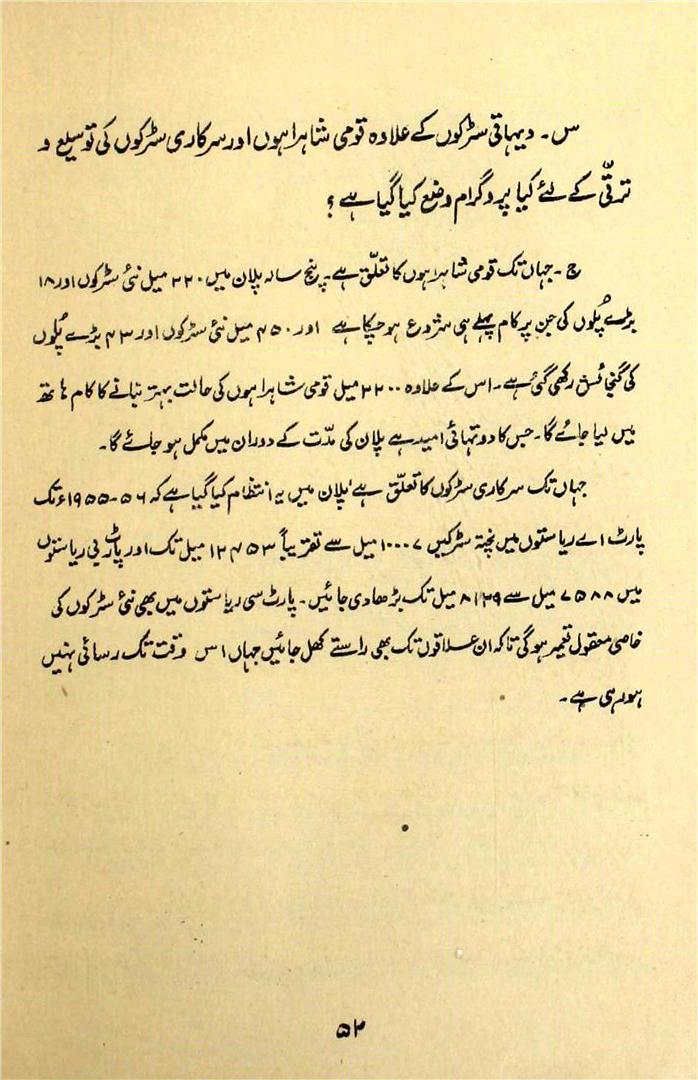 س۔ دیہاتی سڑکوں کے علاوہ قومی شاہراہوں اور سرکاری سڑکوں کی توسیع و
ترقّی کے لئے کیا پروگرام وضع کیا گیا ہے ؟
ج۔ جہاں تک قومی شاہراہوں کا تعلّق ہے۔ پنج سالہ پلان میں ۲۲۰ میل نئی سڑکوں اور ۱۸
بڑے پُلوں کی جن پر کام پہلے ہی شروع ہو چکا ہے اور ۴۵۰ میل نئی سڑکوں اور ۴۳ بڑے پُلوں
کی گنجائش رکھی گئی ہے۔ اس کے علاوہ ۲۲۰۰ میل قومی شاہراہوں کی حالت بہتر بنانے کا کام ہاتھ
میں لیا جائے گا۔ جس کا دو تہائی امید ہے پلان کی مدّت کے دوران میں مکمل ہو جائے گا۔
جہاں تک سرکاری سڑکوں کا تعلّق ہے پلان میں یہ انتظام کیا گیا ہے کہ ۵۶-۱۹۵۵ء تک
پارٹ اے ریاستوں میں پختہ سڑکیں ۱۰۰۰۷ میل سے تقریباً ۱۲۴۵۳ میل تک اور پارٹ بی ریاستوں
میں ۷۵۸۸ میل سے ۸۱۲۹ میل تک بڑھا دی جائیں۔ پارٹ سی ریاستوں میں بھی نئی سڑکوں کی
خاصی معقول تعمیر ہو گی تاکہ ان علاقوں تک بھی راستے کھل جائیں جہاں اس وقت تک رسائی نہیں
ہو رہی ہے۔
۵۲